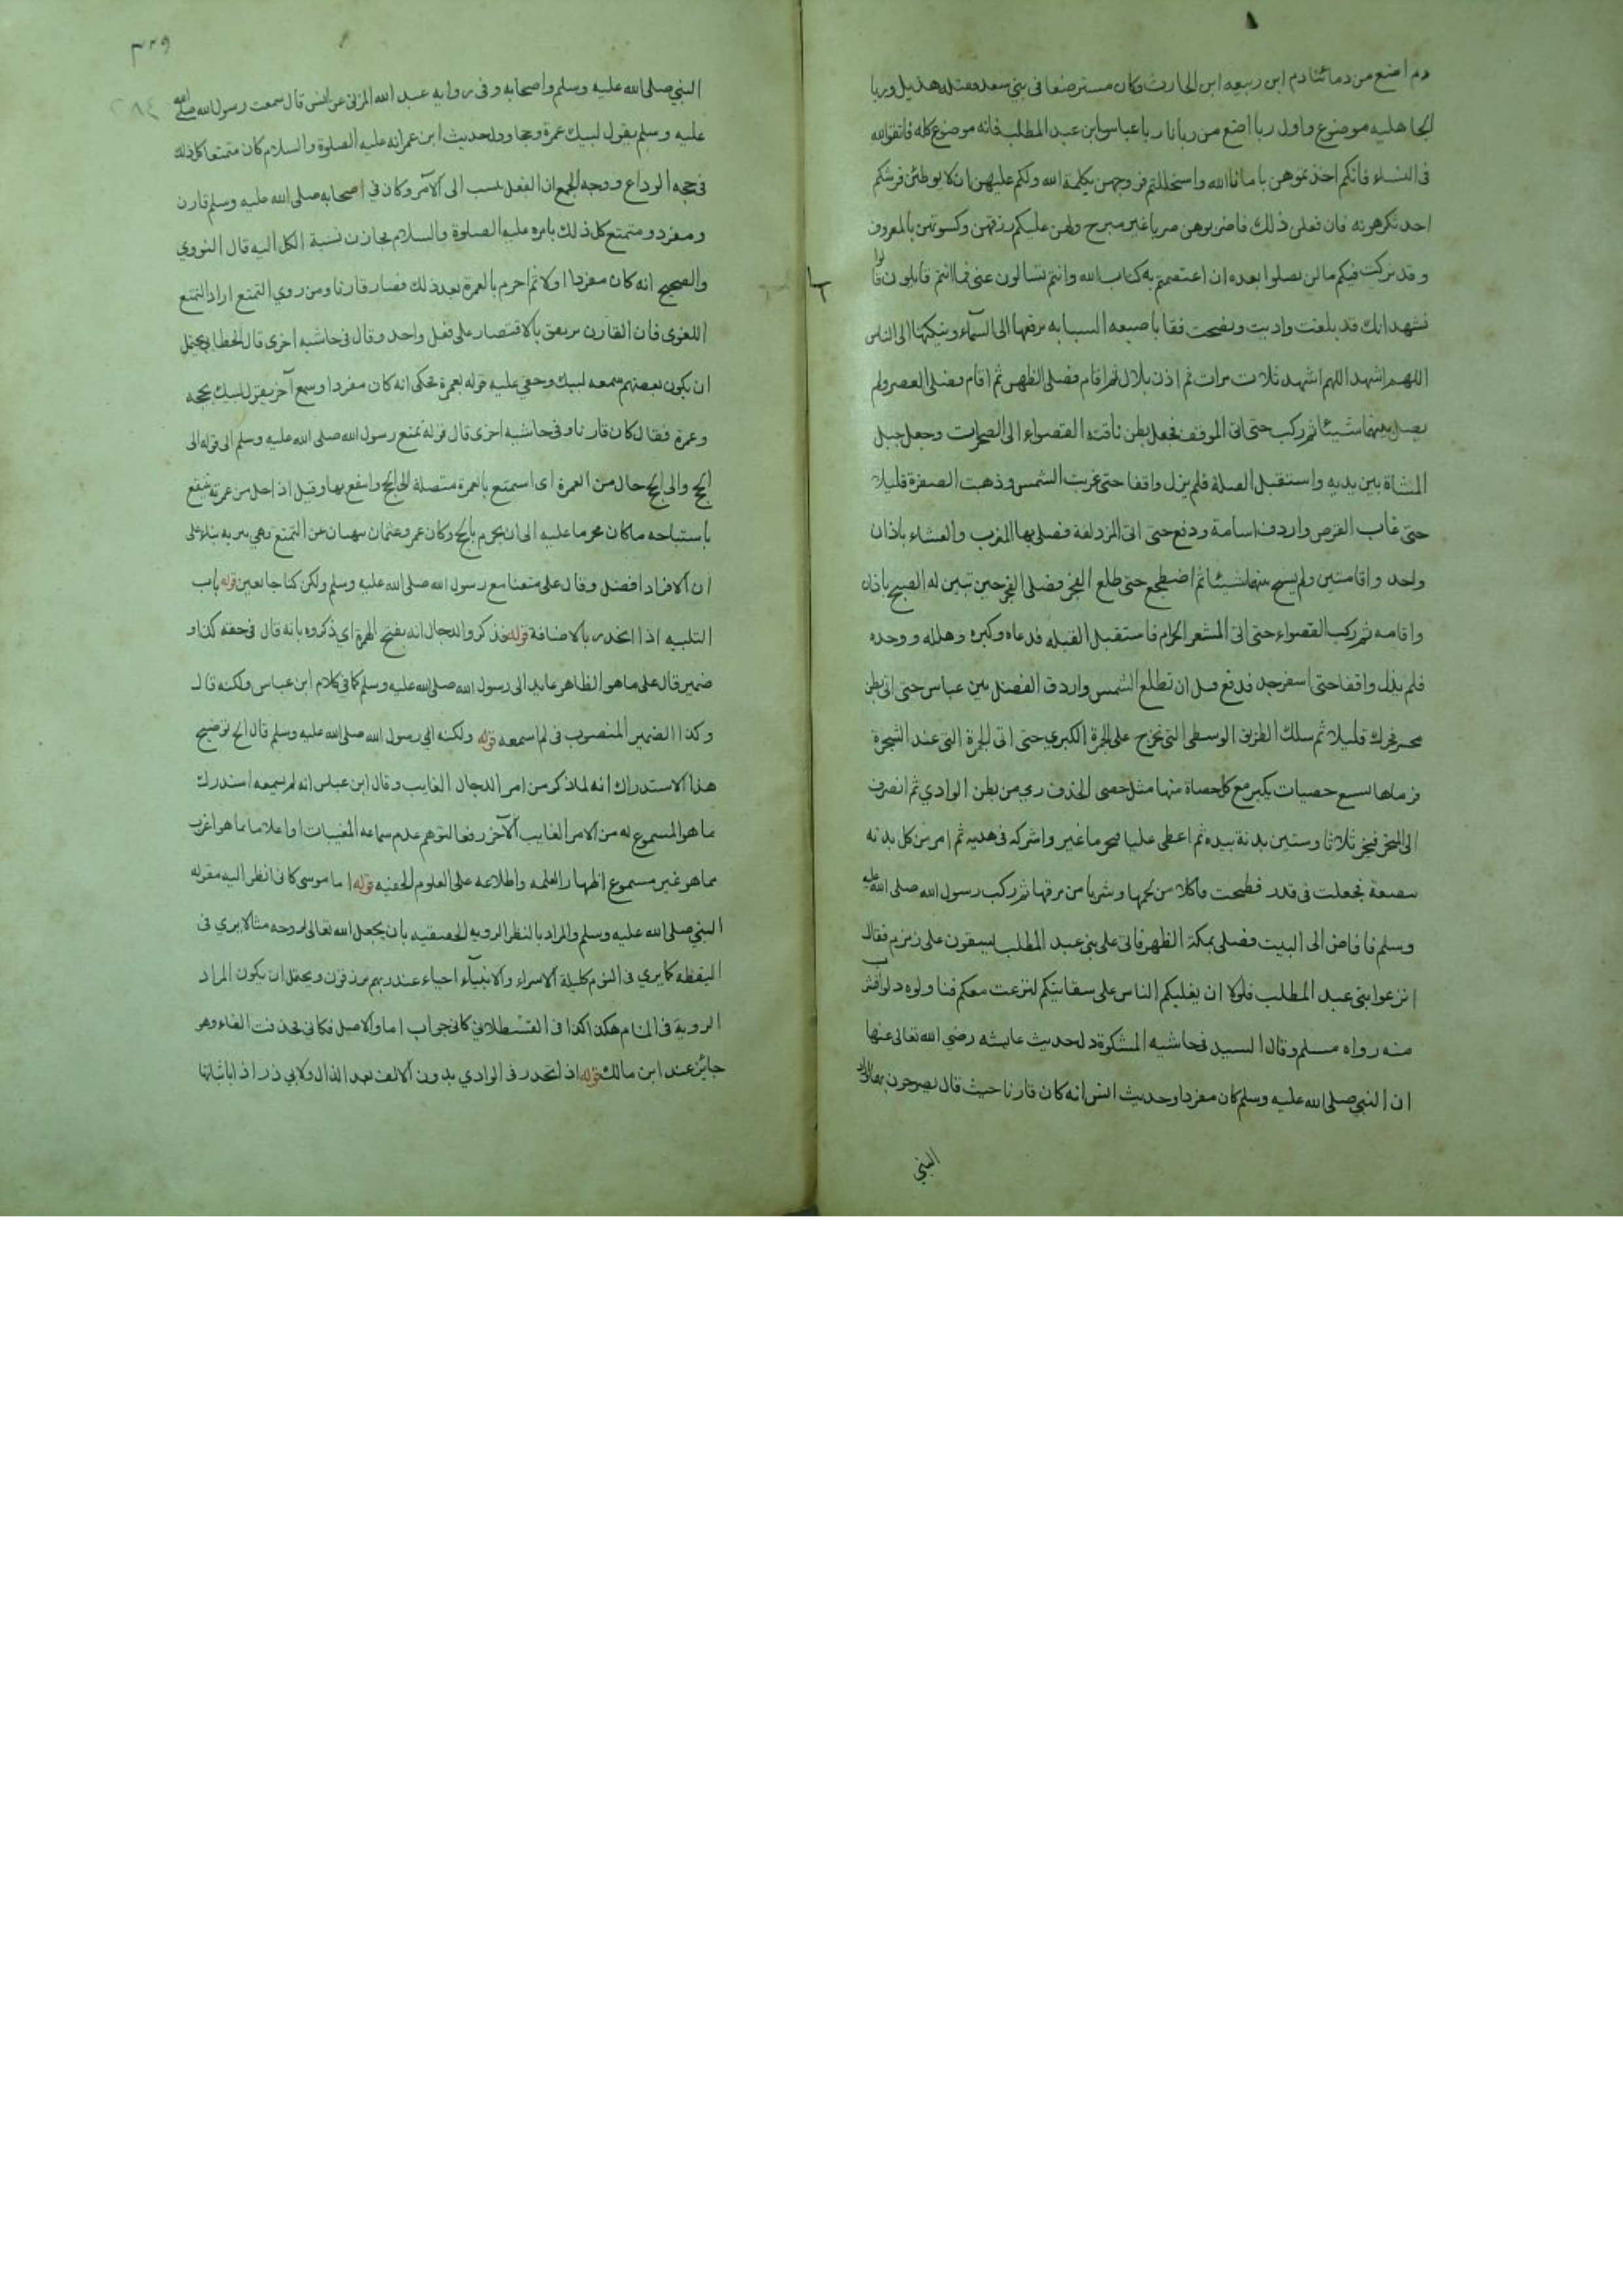 دم اضع من دمائنا دم ابن ربيعه ابن الحارث وكان مسترضعا فى بنى سعد فقتله هذيل وربا
الجاهليه موضوع واول ربا اضع من ربانا ربا عباس ابن عبد المطلب فانه موضوع كله فاتقوالله
فى النساء فانكم اخذتموهن بامان الله واستحللتم فروجهن بكلمة الله ولكم عليهن ان لا يوطئن فرشكم
احد تكرهونه فان فعلن ذلك فاضربوهن ضربا غير مبرح ولهن عليكم رزقهن وكسوتهن بالمعروف
وقد تركت فيكم ما لن تضلوا بعده ان اعتصمتم به كتاب الله وانتم تسالون عنى فما انتم قايلون قالوا
نشهد انك قد بلغت واديت ونصحت فقا باصبعه السبابه يرفعها الى السمآء وينكتها الى الناس
اللهم اشهد اللهم اشهد ثلاث مرات ثم اذن بلال ثم اقام فصلى الظهر ثم اقام فصلى العصر ولم
يصل بينهما شيئا ثم ركب حتى اتى الموقف فجعل بطن ناقته القصواء الى الصخرات وجعل جبل
المشاة بين يديه واستقبل القبلة فلم يزل واقفا حتى غربت الشمس وذهبت الصفرة قليلا
حتى غاب القرص واردف اسامة ودفع حتى اتى المزدلفة فصلى بها المغرب والعشاء باذان
واحد واقامتين ولم يسبح بينهما شيئا ثم اضطجع حتى طلع الفجر فصلى الفجر حين تبين له الصبح باذان
واقامه ثم ركب القصواء حتى اتى المشعر الحرام فاستقبل القبله فدعاه وكبره وهلله ووحده
فلم يزل واقفا حتى اسفر جدا فدفع قبل ان تطلع الشمس واردف الفضل بين عباس حتى اتى بطن
محسر فحرك قليلا ثم سلك الطريق الوسطى التى تخرج على الجمرة الكبرى حتى اتى الجمرة التى عند الشجرة
فرماها بسبع حصيات يكبر مع كل حصاة منها مثل حصى الخذف رمى من بطن الوادي ثم انصرف
الى المنحر فنحر ثلاثا وستين بدنة بيده ثم اعطى عليا فنحر ما غبر واشركه فى هديه ثم امر من كل بدنه
ببضعة فجعلت فى قدر فطبخت فاكلا من لحمها وشربا من مرقها ثم ركب رسول الله صلى الله عليه
وسلم فافاض الى البيت فصلى بمكة الظهر فاتى على بنى عبد المطلب يسقون على زمزم فقال
انزعوا بنى عبد المطلب فلولا ان يغلبكم الناس على سقايتكم لنزعت معكم فناولوه دلوا فشرب
منه رواه مسلم وقال السيد فى حاشيه المشكوة دل حديث عايشه رضي الله تعالى عنها
ان النبي صلى الله عليه وسلم كان مفردا وحديث انس انه كان قارنا حيث قال يصرخون بهما
النبي
٣٢٩
النبي صلى الله عليه وسلم واصحابه وفى روايه عبد الله المزنى عن انس قال سمعت رسول الله صلى الله
عليه وسلم يقول لبيك عمرة وحجا ودل حديث ابن عمر انه عليه الصلوة والسلام كان متمتعا كل ذلك
فى حجه الوداع ووجه الجمع ان الفعل ينسب الى الآمر وكان في اصحابه صلى الله عليه وسلم قارن
ومفرد ومتمتع كل ذلك بامره عليه الصلوة والسلام فجازت نسبة الكل اليه قال النووي
والصحيح انه كان مفردا اولا ثم احرم بالعمرة بعد ذلك فصار قارنا ومن روي التمتع اراد التمتع
اللغوى فان القارن يرتفق بالاقتصار على فعل واحد وقال فى حاشيه اخرى قال الخطابى يحتمل
ان يكون بعضهم سمعه لبيك وخفى عليه قوله بعمرة فحكى انه كان مفردا وسمع آخر يقول لبيك بحجه
وعمرة فقال كان قارنا وفى حاشيه اخرى قال قوله تمتع رسول الله صلى الله عليه وسلم الى قوله الى
الحج والى الحج حال من العمرة اى استمتع بالعمرة متصلة الى الحج وانتفع بها وقيل اذا حل من عمرته ينتفع
باستباحه ما كان محرما عليه الى ان يحرم بالحج وكان عمر وعثمان ينهيان عن التمتع نهي تنزيه بناء على
ان الافراد افضل وقال على متعنا مع رسول الله صلى الله عليه وسلم ولكن كنا خايفين قوله باب
التلبيه اذا انحدر بالاضافة قوله فذكروا الدجال انه بفتح الهمزة اي ذكروه بانه قال فى حقه كذا و
ضمير قال على ما هو الظاهر عايد الى رسول الله صلى الله عليه وسلم كما في كلام ابن عباس ولكنه قال
وكذا الضمير المنصوب فى لم اسمعه قوله ولكنه اي رسول الله صلى الله عليه وسلم قال الخ توضيح
هذا الاستدراك انه لما ذكر من امر الدجال الغايب وقال ابن عباس انه لم يسمعه استدرك
ما هو المسموع له من الامر الغايب الآخر رفعا لتوهم عدم سماعه المغيبات او اعلاما ما هو اغرب
مما هو غير مسموع اظهارا لعلمه واطلاعه على العلوم الخفيه قوله اما موسى كانى انظر اليه مقوله
النبي صلى الله عليه وسلم والمراد بالنظر الرويه الحقيقيه بان يجعل الله تعالى لروحه مثالا يرى فى
اليقظه كما يرى فى النوم كليلة الاسراء والانبيآء احياء عند ربهم يرزقون ويحتمل ان يكون المراد
الروية فى المنام هكذا كذا فى القسطلانى كانى جواب اما والاصل فكانى فحذفت الفاء وهو
جايز عند ابن مالك قوله اذ انحدر فى الوادي بدون الالف بعد الذال ولابي ذر اذا باثباتها